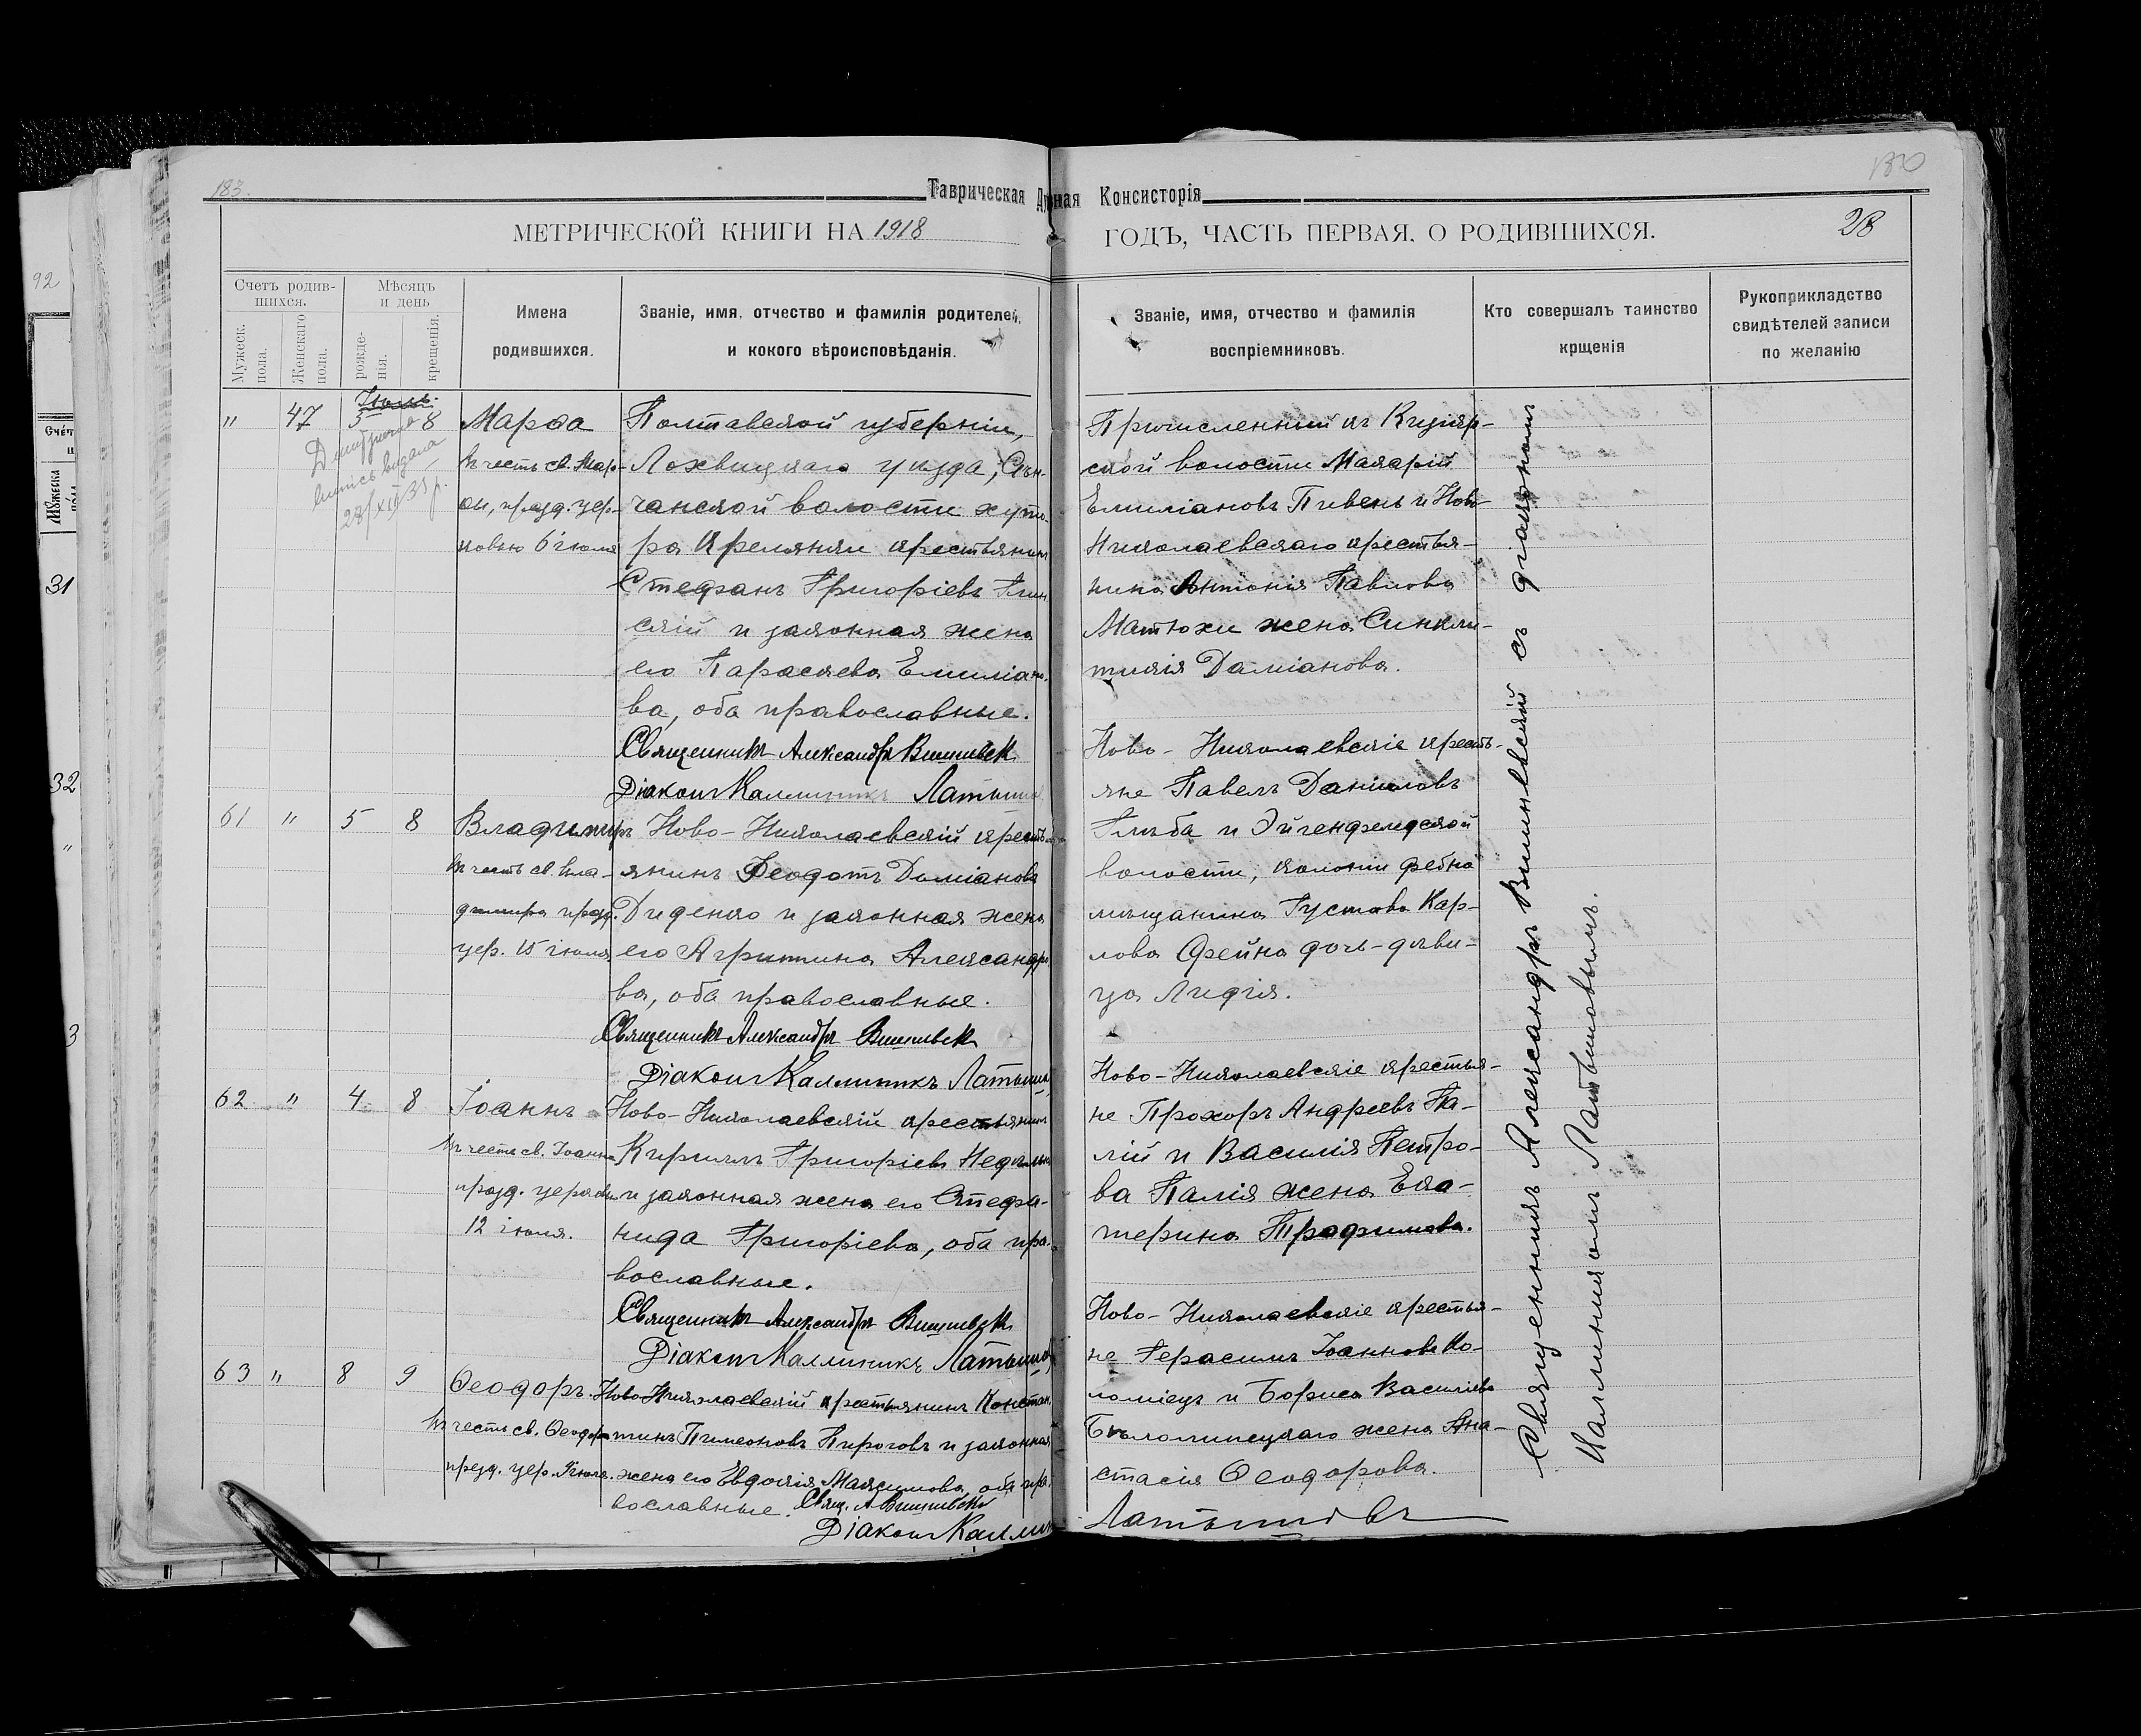 183.
130
Таврическая Духовная Консисторія
МЕТРИЧЕСКОЙ КНИГИ НА 1918
ГОДЪ, ЧАСТЬ ПЕРВАЯ, О РОДИВШИХСЯ.
28
Счетъ родив-
шихся.
Мужеск.
пола.
Женскаго
пола.
Мѣсяцъ
и день
рожде-
нія.
крещенія.
Имена
родившихся.
Званіе, имя, отчество и фамилія родителей,
и кокого вѣроисповѣданія.
Званіе, имя, отчество и фамилія
воспріемниковъ.
Кто совершалъ таинство
крщенія
Рукоприкладство
свидѣтелей записи
по желанію
Іюль.
" 47 5 8
выпись видана
28/XII 35 р.
Марѳа
въ честь св. Мар-
ѳы, празд. цер-
ковью 6 іюля
Полтавской губерніи,
Лохвицкаго уѣзда, Сѣн-
чанской волости хуто-
ра крестьянинъ
Стефанъ Григоріевъ
скій и законная жена
его Параскева Емиліано-
ва, оба православные.
Священникъ Александръ Вишневскій
Діаконъ Каллиникъ Латышовъ
Причисленный къ Кизіяр-
ской волости Макарій
Емиліановъ Пивень и Ново-
Николаевскаго крестья-
нина Антонія Павлова
Матюхи жена Синкли-
тикія Даміанова.
61 " 5 8
Владиміръ
въ честь св. Вла-
диміра празд.
цер. 15 іюля
Ново-Николаевскій кресть-
янинъ Феодотъ Даміановъ
Диденко и законная жена
его Агрипина Александро-
ва, оба православные.
Священникъ Александръ Вишневскій
Діаконъ Каллиникъ Латышовъ
Ново-Николаевскіе кресть-
яне Павелъ Даніиловъ
Глыба и Эйгенфельдской
волости, колоніи
мѣщанина Густава Кар-
лова Фейна дочь-дѣви-
ца Лидія.
62 " 4 8
Іоаннъ
въ честь св. Іоанна
празд. церковью
12 іюля.
Ново-Николаевскій крестьянинъ
Кириллъ Григоріевъ
и законная жена его Стефа-
нида Григоріева, оба пра-
вославные.
Священникъ Александръ Вишневскій
Діаконъ Каллиникъ Латышовъ
Ново-Николаевскіе крестья-
не Прохоръ Андреевъ Па-
лій и Василія Петро-
ва Палія жена Ека-
терина Трофимова.
63 " 8 9
Ѳеодоръ.
въ честь св. Ѳеодора
празд. цер. 9 іюля.
Ново-Николаевскій крестьянинъ Констан-
тинъ Пимоновъ Пироговъ и законная
жена его Евдокія Максимова, оба пра-
вославные. Свящ. А Вишневскій
Діаконъ Каллиникъ
Латышовъ
Ново-Николаевскіе крестья-
не Герасимъ Іоанновъ Ко-
ломіецъ и Бориса Василіева
Бѣлопипецкаго жена Ана-
стасія Ѳеодорова.
Священникъ Александръ Вишневскій съ діакономъ
Каллиникомъ Латышовымъ.
92
31
32
"
3